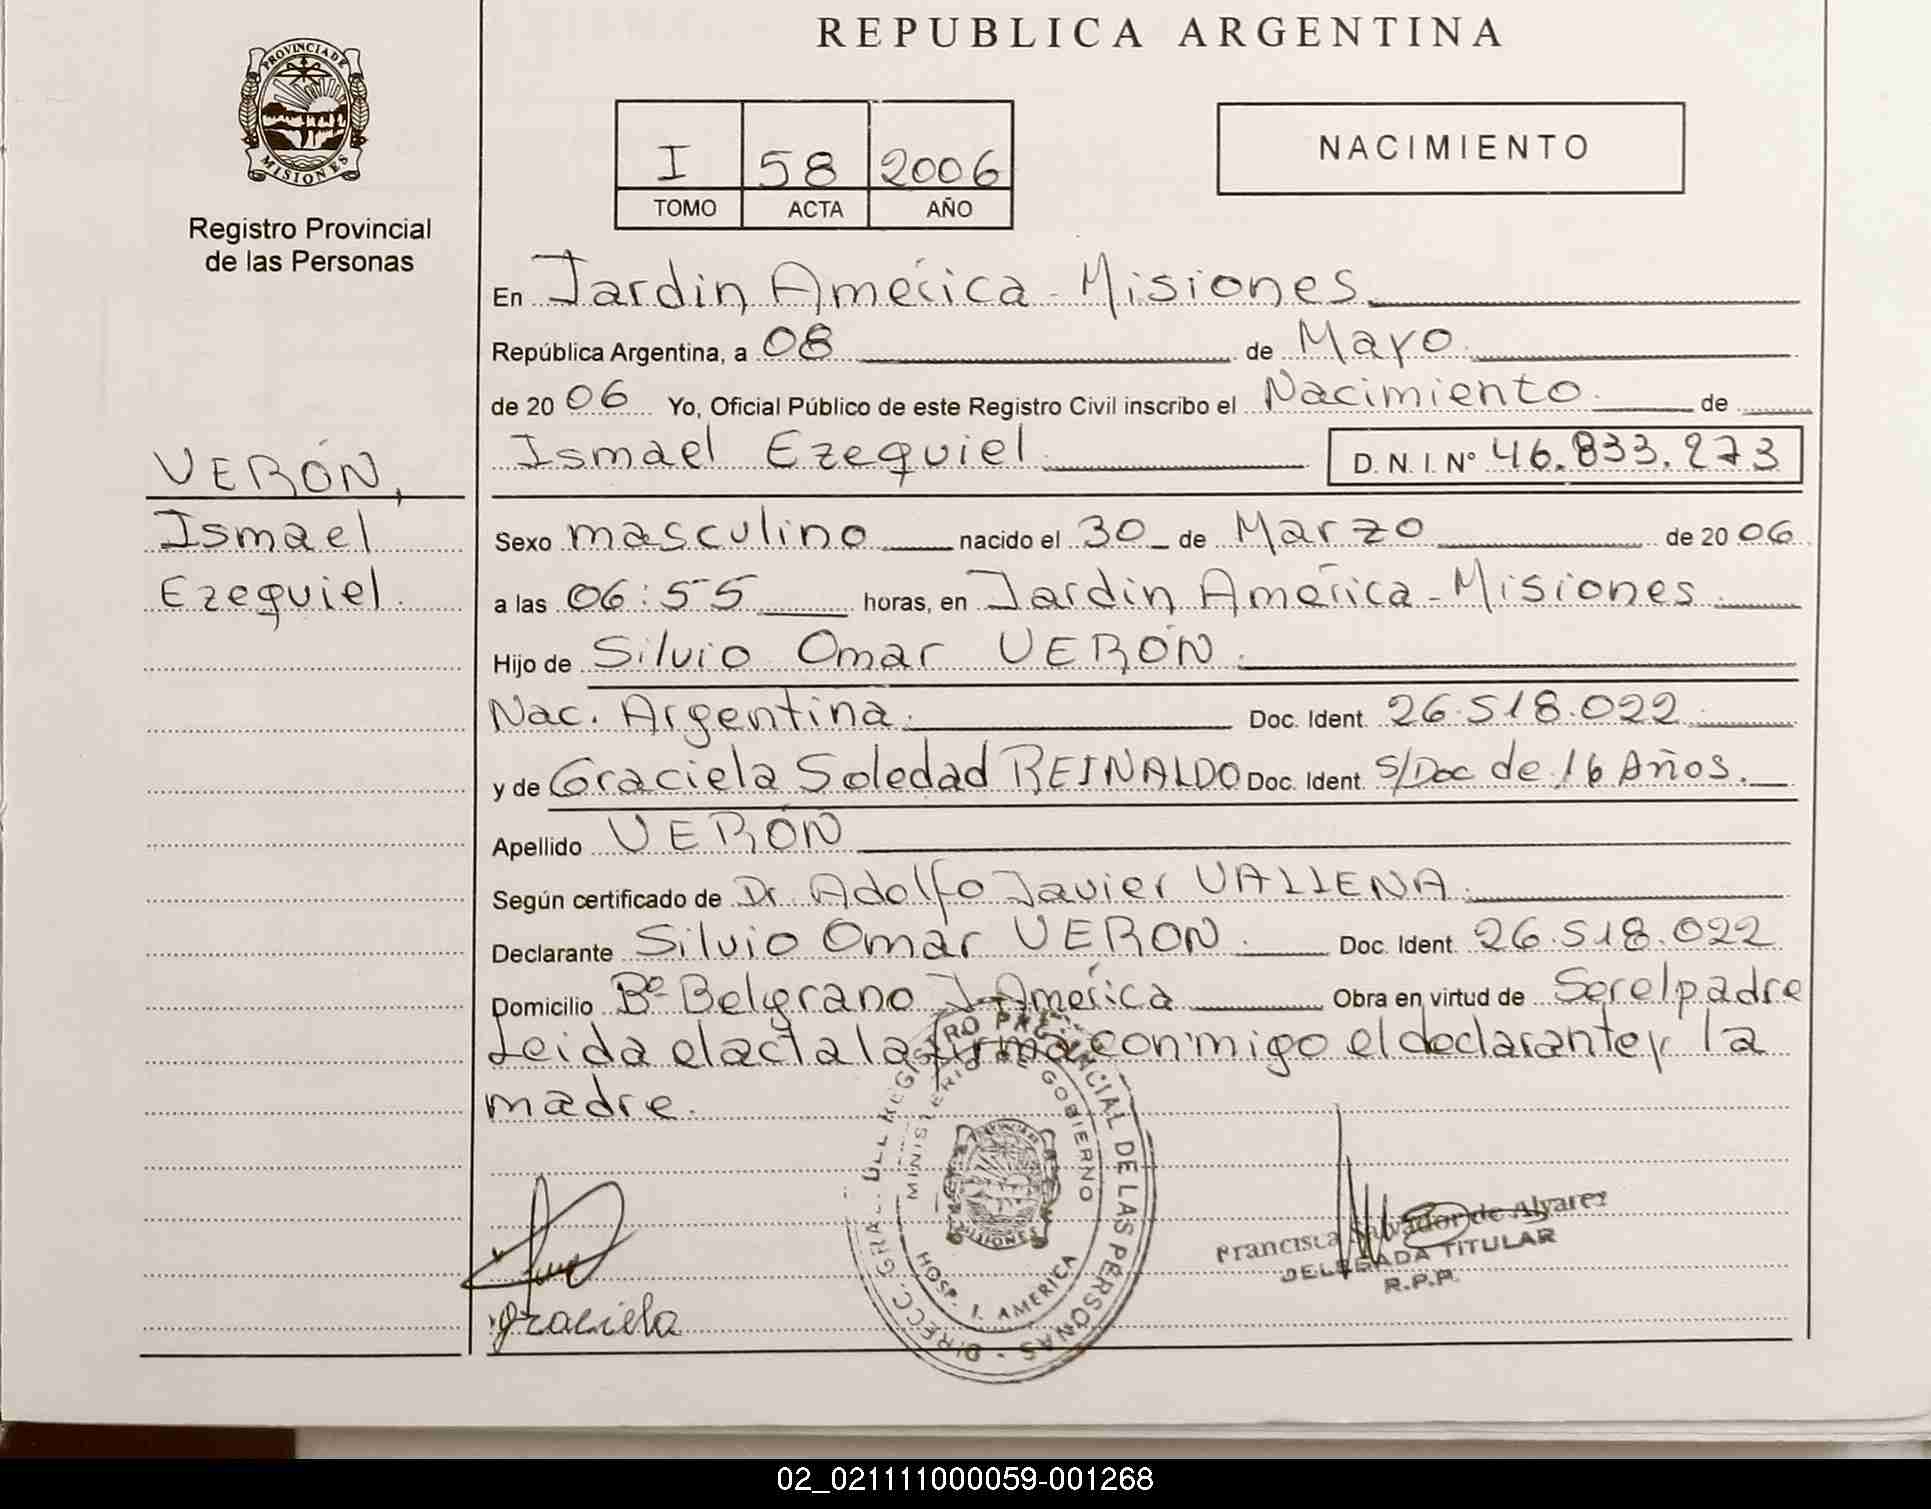 REPUBLICA ARGENTINA
PROVINCIA DE
MISIONES
Registro Provincial
de las Personas
I 58 2006
TOMO ACTA AÑO
NACIMIENTO
En Jardin América - Misiones
República Argentina, a 08 de Mayo
de 20 06 Yo, Oficial Público de este Registro Civil inscribo el Nacimiento de
Ismael Ezequiel D. N. I. Nº 46.833.273
VERÓN,
Ismael
Ezequiel.
Sexo masculino nacido el 30 de Marzo de 20 06
a las 06:55 horas, en Jardin América - Misiones
Hijo de Silvio Omar VERÓN.
Nac. Argentina. Doc. Ident. 26.518.022
y de Graciela Soledad REINALDO Doc. Ident. S/Doc de 16 Años.
Apellido VERÓN
Según certificado de Dr. Adolfo Javier VALLENA.
Declarante Silvio Omar VERON. Doc. Ident. 26.518.022
Domicilio Bº Belgrano J. América Obra en virtud de Ser el padre
Leida el acta la firma conmigo el declarante y la
madre.
DIRECC. GRAL. DEL REGISTRO PROVINCIAL DE LAS PERSONAS -
MINISTERIO DE GOBIERNO
MISIONES
HOSP. J. AMERICA
Francisca Salvador de Alvarez
DELEGADA TITULAR
R.P.P.
graciela
02_021111000059-001268